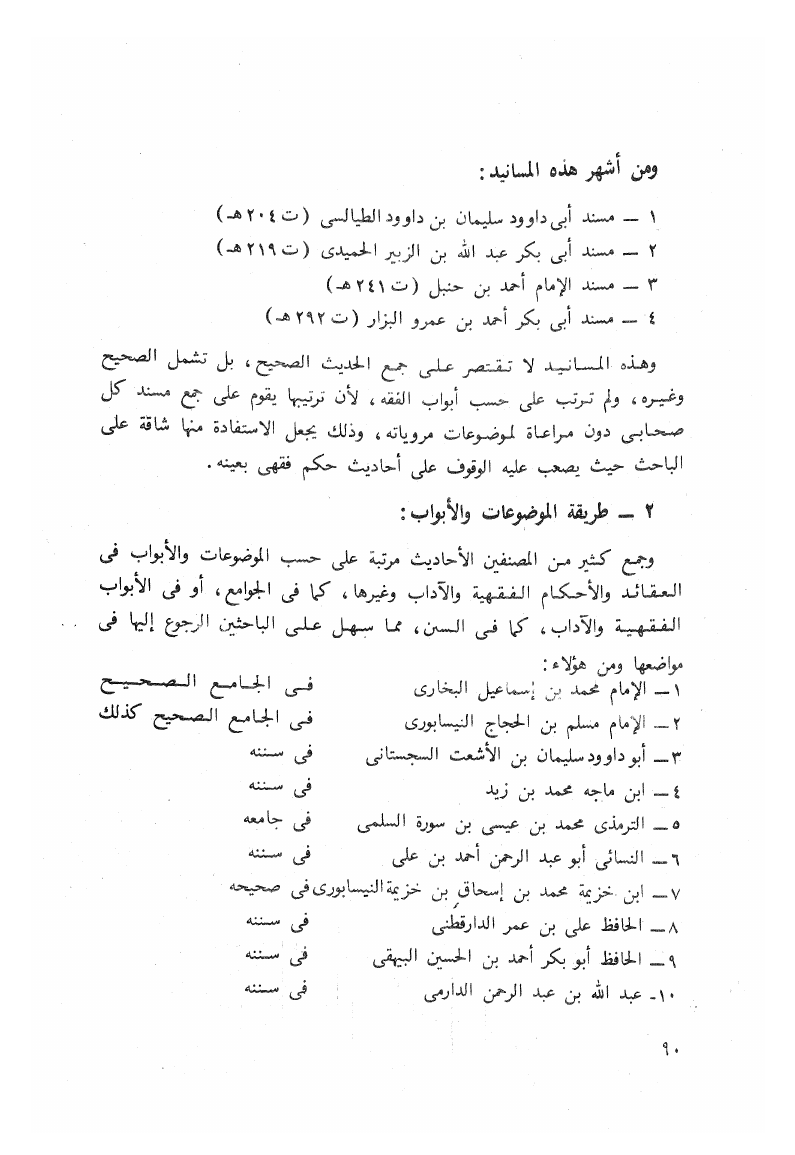 ومن أشهر هذه المسانيد :
١ ــ مسند أبى داوود سليمان بن داوود الطيالسى (ت ٢٠٤هـ)
٢ ــ مسند أبى بكر عبد الله بن الزبير الحميدى (ت ٢١٩هـ)
٣ ــ مسند الإمام أحمد بن حنبل (ت ٢٤١هـ)
٤ ــ مسند أبى بكر أحمد بن عمرو البزار (ت ٢٩٢هـ)
وهذه المسانيد لا تقتصر على جمع الحديث الصحيح، بل تشمل الصحيح
وغيره، ولم ترتب على حسب أبواب الفقه، لأن ترتيبها يقوم على جمع مسند كل
صحابى دون مراعاة لموضوعات مروياته، وذلك يجعل الاستفادة منها شاقة على
الباحث حيث يصعب عليه الوقوف على أحاديث حكم فقهى بعينه.
٢ ــ طريقة الموضوعات والأبواب :
وجمع كثير من المصنفين الأحاديث مرتبة على حسب الموضوعات والأبواب فى
العقائد والأحكام الفقهية والآداب وغيرها، كما فى الجوامع، أو فى الأبواب
الفقهية والآداب، كما فى السنن، مما سهل على الباحثين الرجوع إليها فى
مواضعها ومن هؤلاء :
١ــ الإمام محمد بن إسماعيل البخارى فى الجامع الصحيح
٢ــ الإمام مسلم بن الحجاج النيسابورى فى الجامع الصحيح كذلك
٣ــ أبو داوود سليمان بن الأشعت السجستانى فى سننه
٤ــ ابن ماجه محمد بن زيد فى سننه
٥ــ الترمذى محمد بن عيسى بن سورة السلمى فى جامعه
٦ــ النسائى أبو عبد الرحمن أحمد بن على فى سننه
٧ــ ابن خزيمة محمد بن إسحاق بن خزيمة النيسابورى فى صحيحه
٨ــ الحافظ على بن عمر الدارقطنى فى سننه
٩ــ الحافظ أبو بكر أحمد بن الحسين البيهقى فى سننه
١٠ـ عبد الله بن عبد الرحمن الدارمى فى سننه
٩٠